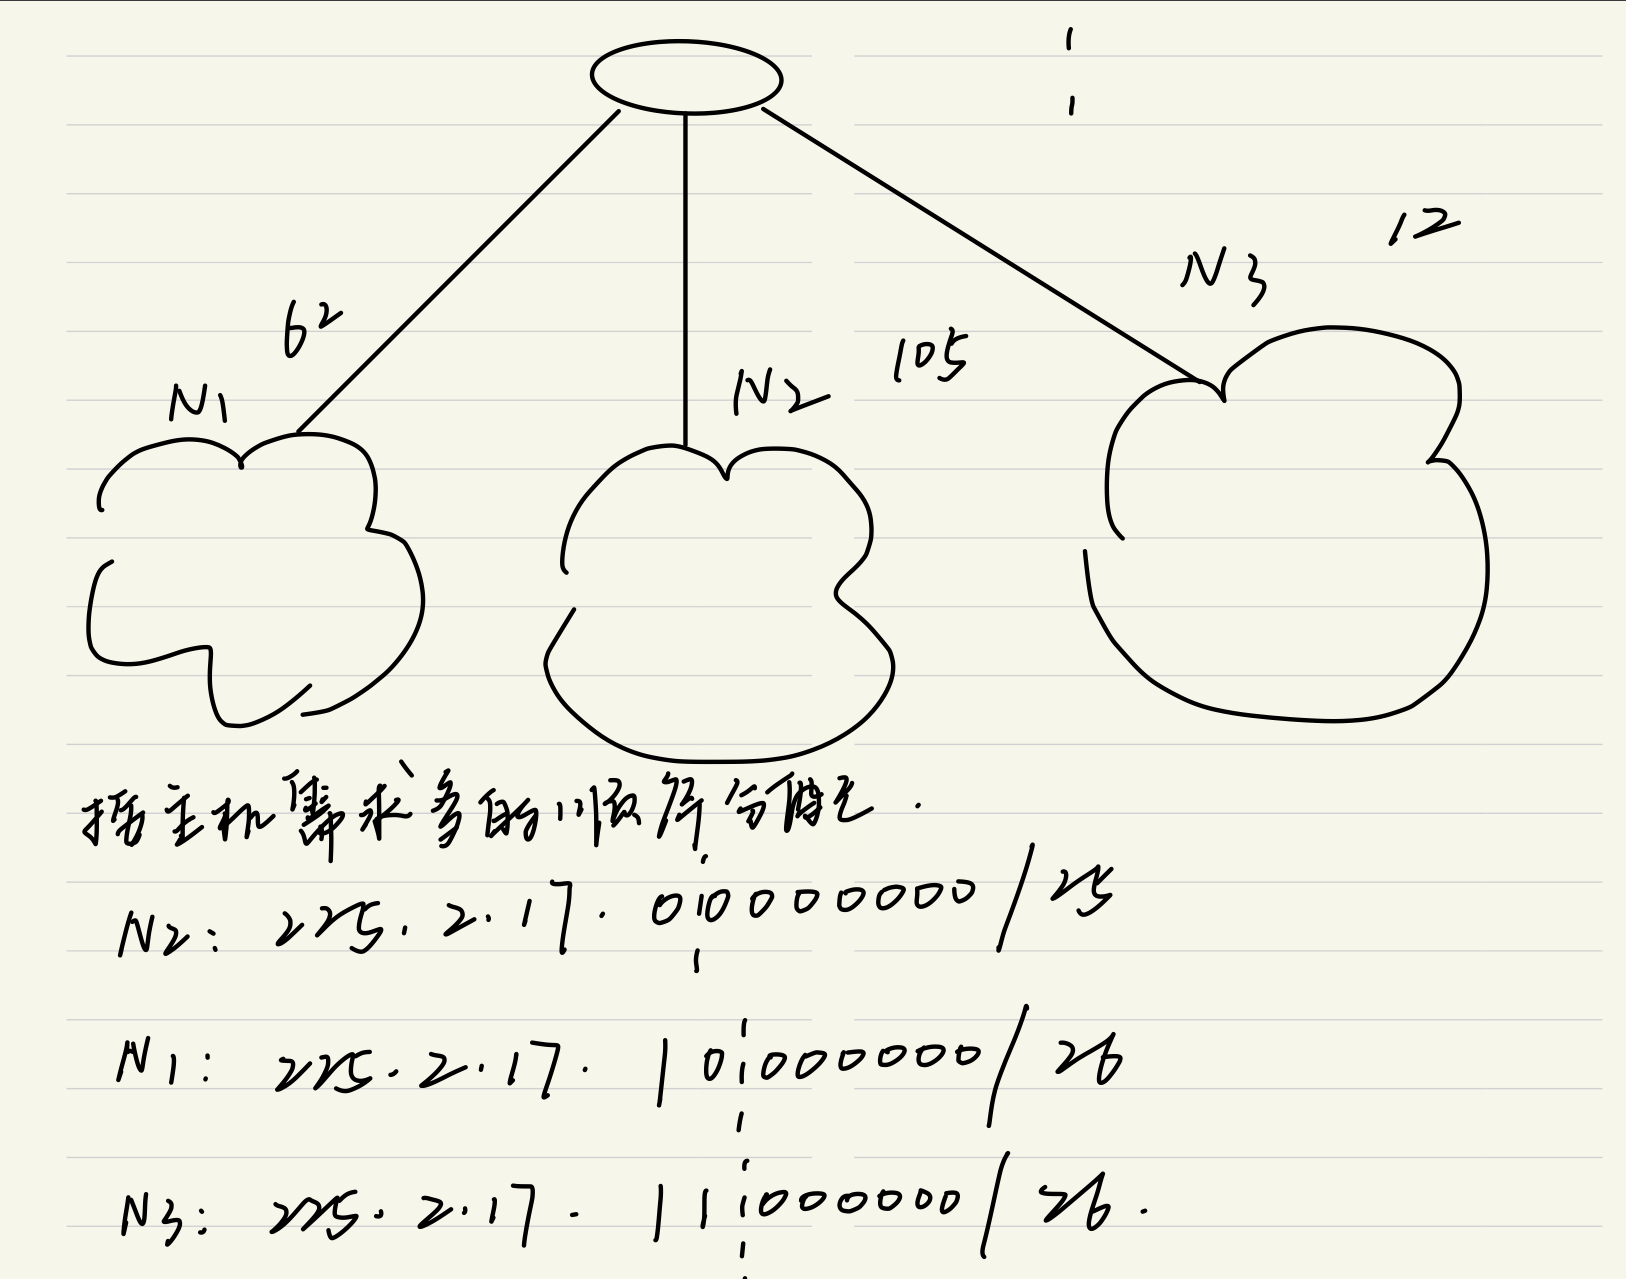 12
N3
62
105
N2
N1
按主机需求多的顺序分配.
N2: 225.2.17.00000000/25
N1: 225.2.17.10000000/26
N3: 225.2.17.11000000/26.